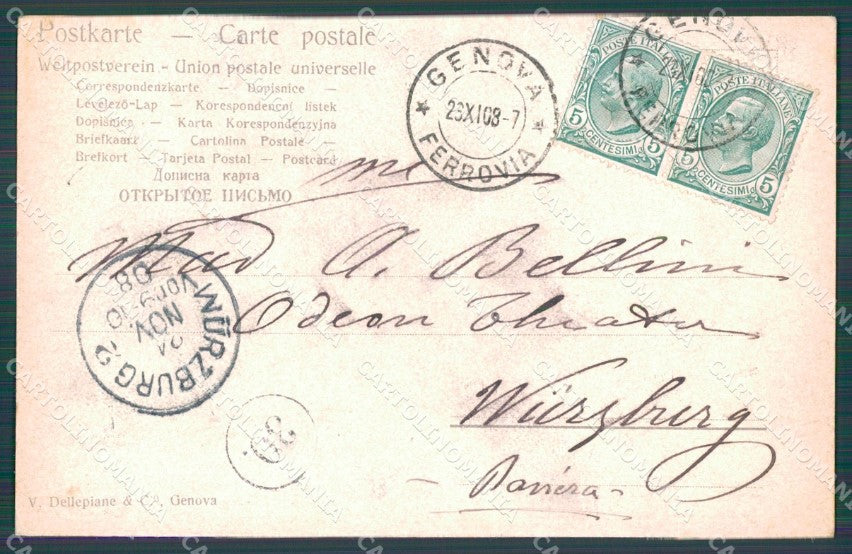 Postkarte — Carte postale
Weltpostverein - Union postale universelle
Correspondenzkarte — Dopisnice —
Levelező-Lap — Korespondenční listek
Dopisnica — Karta Korespondenzyjna
Briefkaart — Cartolina Postale
Brefkort — Tarjeta Postal — Postcard
Дописна карта
ОТКРЫТОЕ ПИСЬМО
GENOVA
23XI08-7
FERROVIA
GENOVA
FERROVIA
POSTE ITALIANE
5 CENTESIMI 5
POSTE ITALIANE
5 CENTESIMI 5
me
Mad A. Bellini
Odeon Theater
Würzburg
- Baviera -
WÜRZBURG 2
NOV.
Vorm 9-10
08
V. Dellepiane & Co., Genova
CARTOLINOMANIA